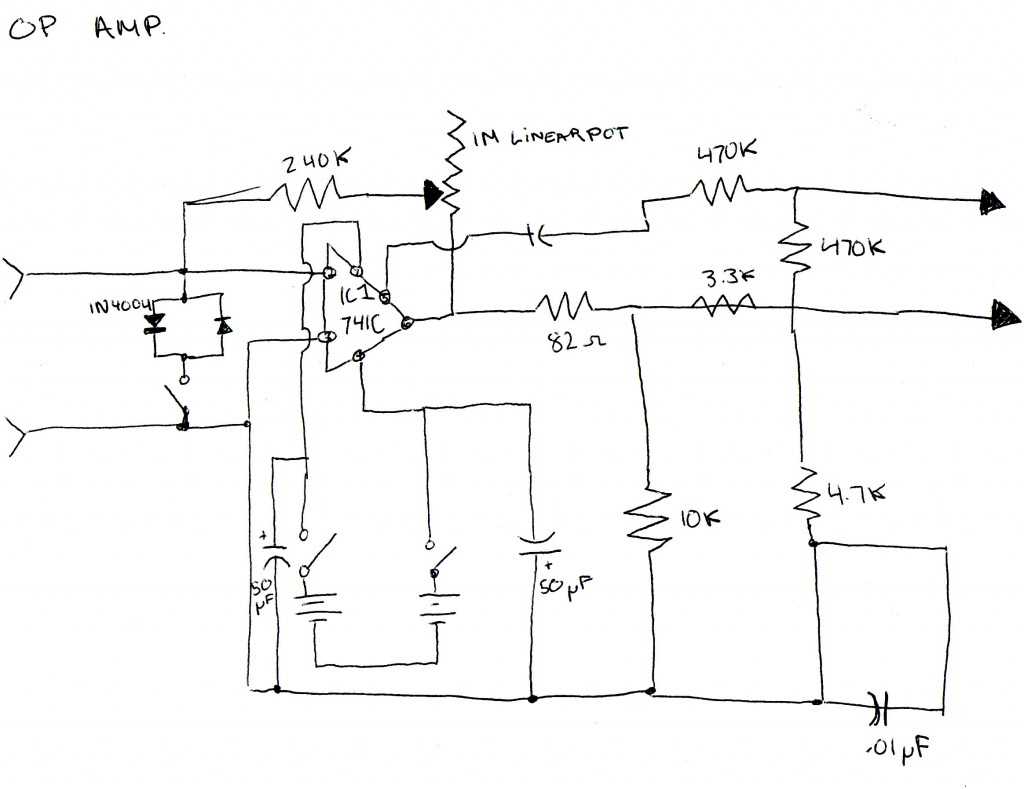 OP AMP.
1M LINEAR POT
240K
470K
470K
1N4004
IC1
741C
3.3K
82Ω
4.7K
10K
+
50
μF
+
50μF
.01μF